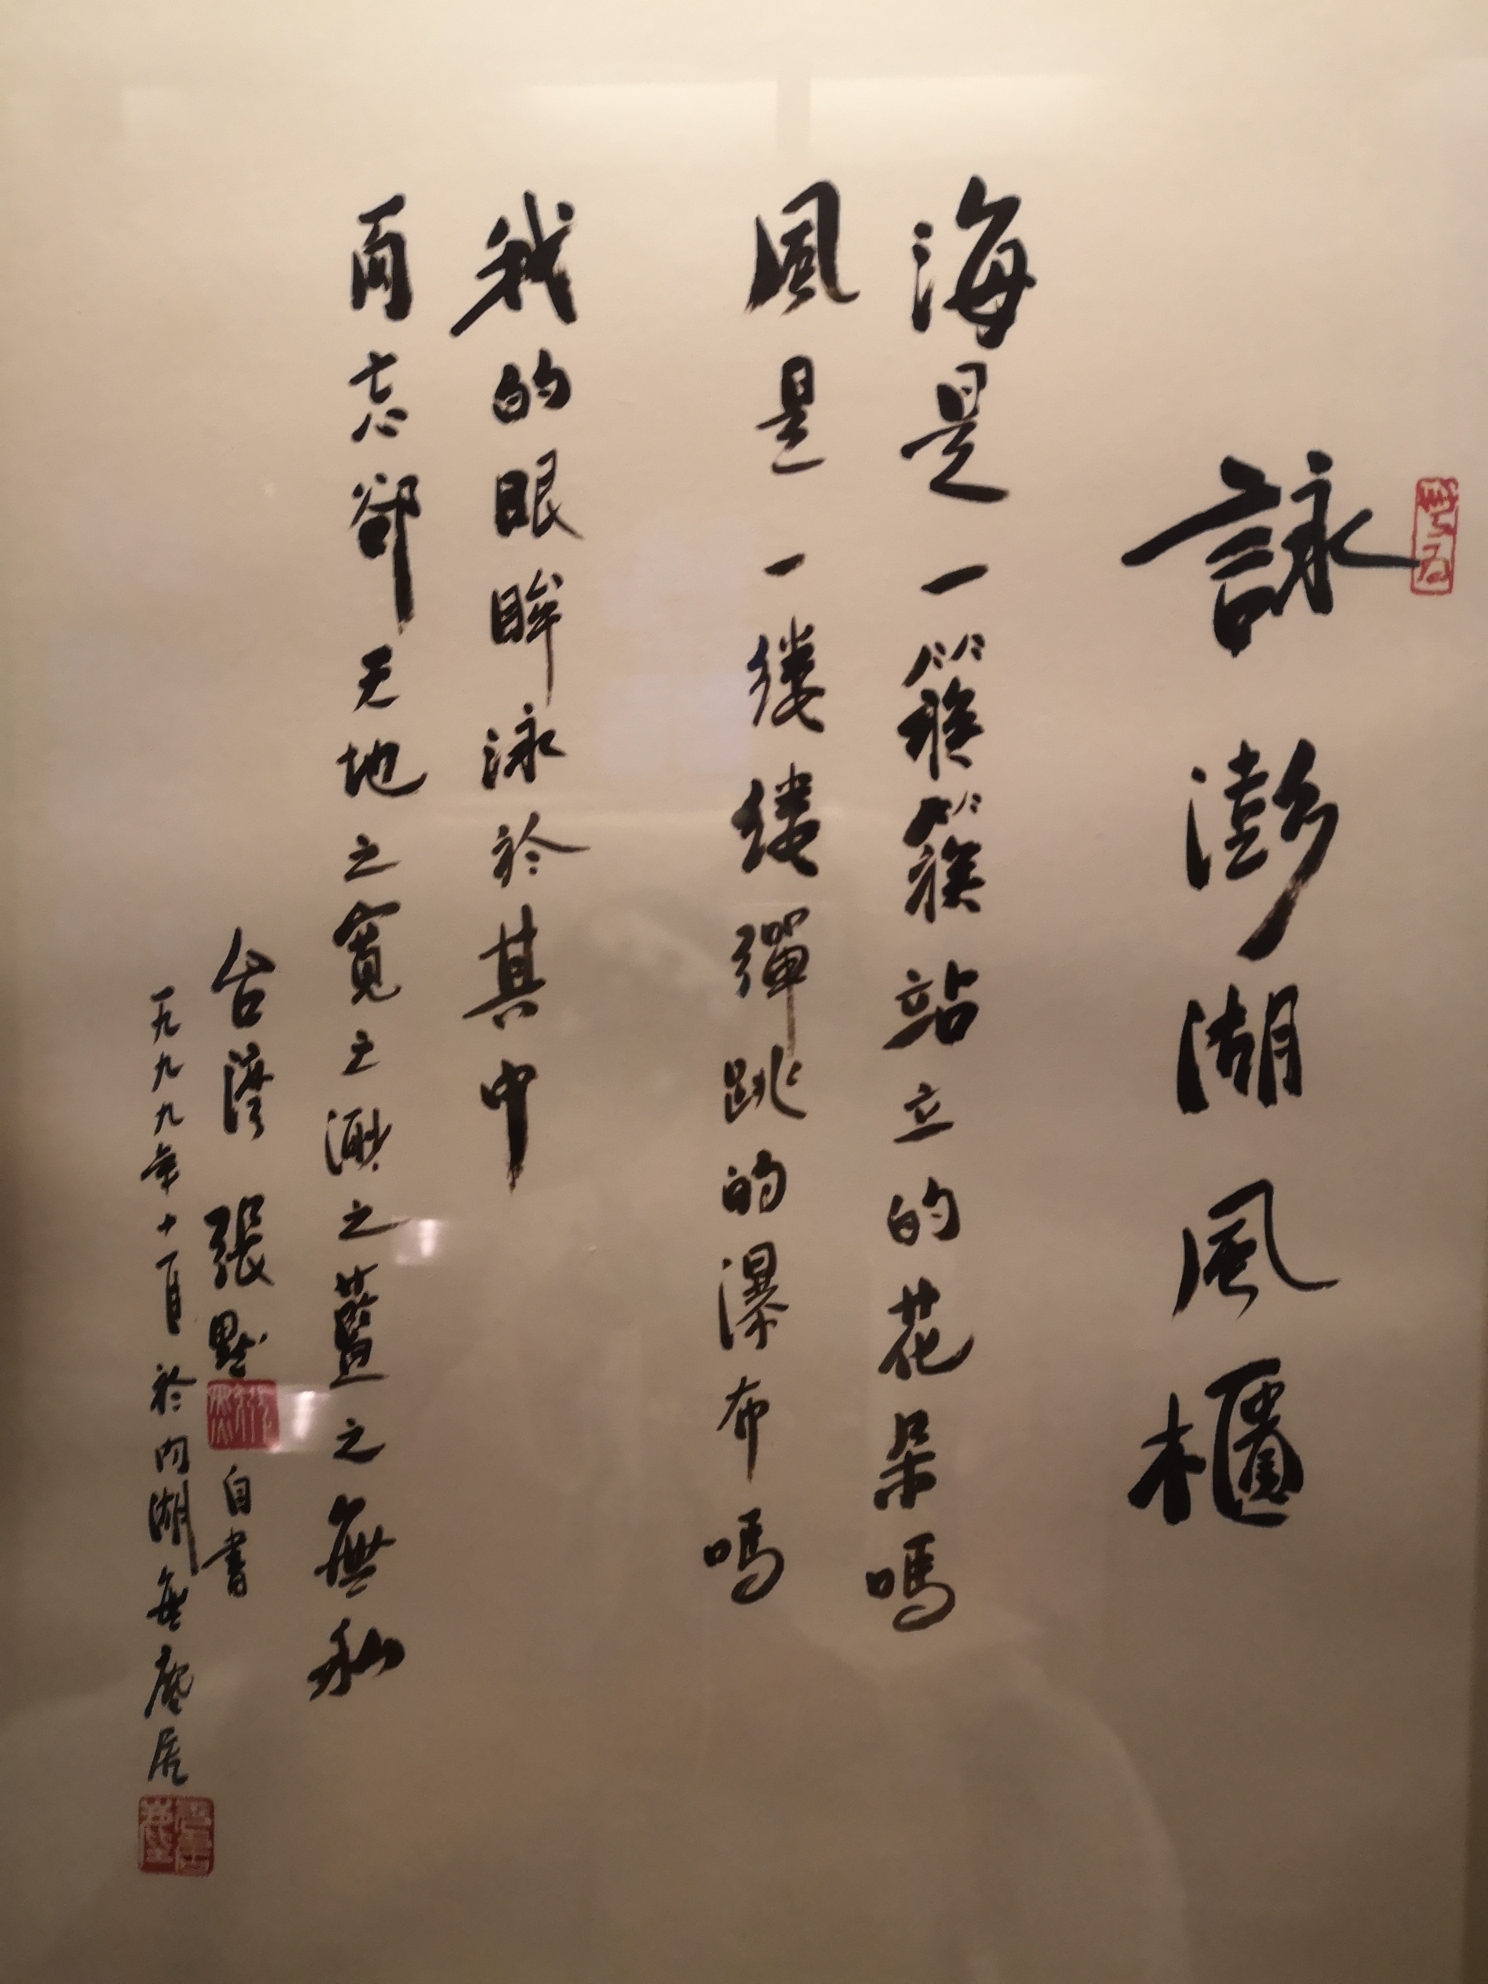 詠澎湖風櫃
海是一簇簇站立的花朵嗎
風是一缕缕彈跳的瀑布嗎
我的眼眸泳於其中
而忘卻天地之寬之渺之藍之無私
台灣 張默 自書
一九九九年十一月於內湖無塵居